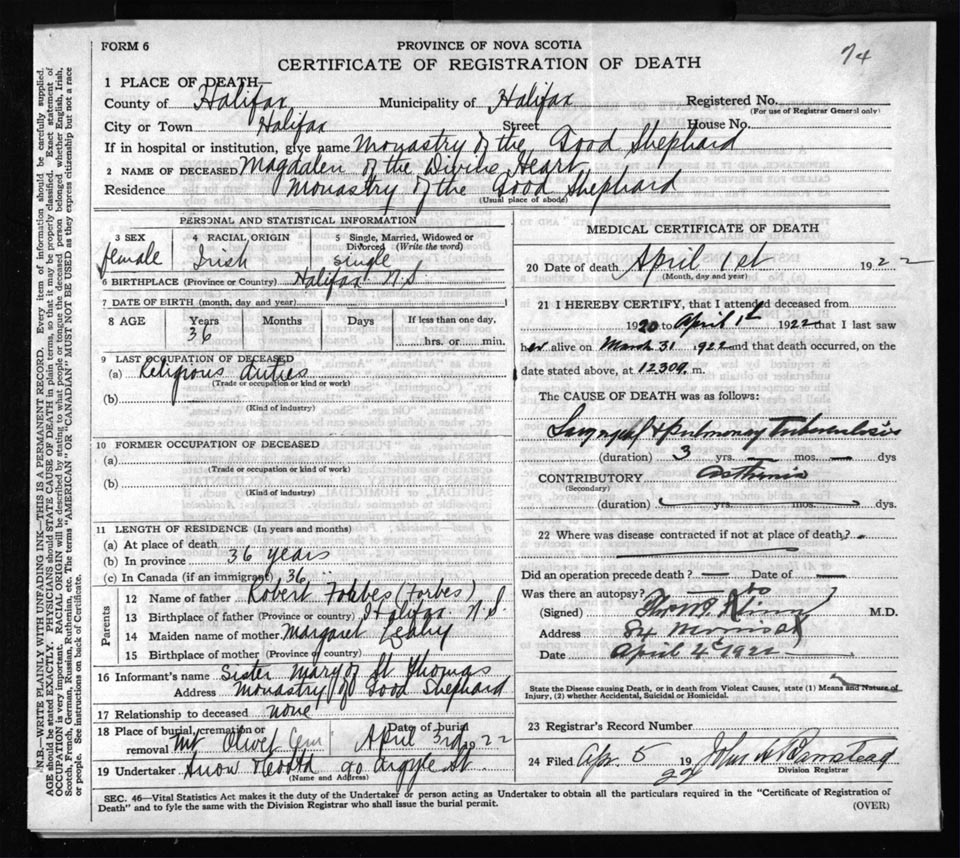 FORM 6
PROVINCE OF NOVA SCOTIA
74
CERTIFICATE OF REGISTRATION OF DEATH
1 PLACE OF DEATH—
County of Halifax Municipality of Halifax Registered No.
(For use of Registrar General only)
City or Town Halifax Street House No.
If in hospital or institution, give name Monastry of the Good Shephard
2 NAME OF DECEASED Magdalen of the Divine Heart
Residence Monastry of the Good Shephard
(Usual place of abode)
PERSONAL AND STATISTICAL INFORMATION
3 SEX 4 RACIAL ORIGIN 5 Single, Married, Widowed or Divorced (Write the word)
female Irish single
6 BIRTHPLACE (Province or Country) Halifax N.S
7 DATE OF BIRTH (month, day and year)
8 AGE Years Months Days If less than one day,
36 hrs. or min.
9 LAST OCCUPATION OF DECEASED
(a) Religious duties
(Trade or occupation or kind or work)
(b)
(Kind of industry)
10 FORMER OCCUPATION OF DECEASED
(a)
(Trade or occupation or kind of work)
(b)
(Kind of industry)
11 LENGTH OF RESIDENCE (In years and months)
(a) At place of death
(b) In province 36 years
(c) In Canada (if an immigrant) 36
Parents
12 Name of father Robert Forbes (Forbes)
13 Birthplace of father (Province or country) Halifax N.S
14 Maiden name of mother Margaret Leahy
15 Birthplace of mother (Province or country)
16 Informant's name Sister Mary of St Thomas
Address Monastry of Good Shephard
17 Relationship to deceased none
18 Place of burial, cremation or removal Mt Olivet Cem Date of burial April 3rd 1922
19 Undertaker Snow 90 Argyle St
(Name and Address)
MEDICAL CERTIFICATE OF DEATH
20 Date of death April 1st 1922
(Month, day and year)
21 I HEREBY CERTIFY, that I attended deceased from
1920 to April 1st 1922 that I last saw
her alive on March 31 1922 and that death occurred, on the
date stated above, at 1230 m.
The CAUSE OF DEATH was as follows:
Laryngeal & Pulmonary Tuberculosis
(duration) 3 yrs. — mos. — dys
CONTRIBUTORY Asthenia
(Secondary)
(duration) yrs. mos. dys.
22 Where was disease contracted if not at place of death?
Did an operation precede death? — Date of —
Was there an autopsy? No
(Signed) M.D.
Address 84 Morris St
Date April 4th 1922
State the Disease causing Death, or in death from Violent Causes, state (1) Means and Nature of Injury, (2) whether Accidental, Suicidal or Homicidal.
23 Registrar's Record Number
24 Filed Apr. 5 1922 John A Barnstead
Division Registrar
SEC. 46—Vital Statistics Act makes it the duty of the Undertaker or person acting as Undertaker to obtain all the particulars required in the "Certificate of Registration of
Death" and to fyle the same with the Division Registrar who shall issue the burial permit.
(OVER)
N.B.—WRITE PLAINLY WITH UNFADING INK—THIS IS A PERMANENT RECORD. Every item of information should be carefully supplied.
AGE should be stated EXACTLY. PHYSICIANS should STATE CAUSE OF DEATH in plain terms, so that it may be properly classified. Exact statement of
OCCUPATION is very important. RACIAL ORIGIN will be described by stating to what people or tongue the deceased person belonged, whether English, Irish,
Scotch, French, German, Russian, Ruthenian, etc. The terms "AMERICAN" OR "CANADIAN" MUST NOT BE USED as they express citizenship but not a race
or people. See instructions on back of Certificate.